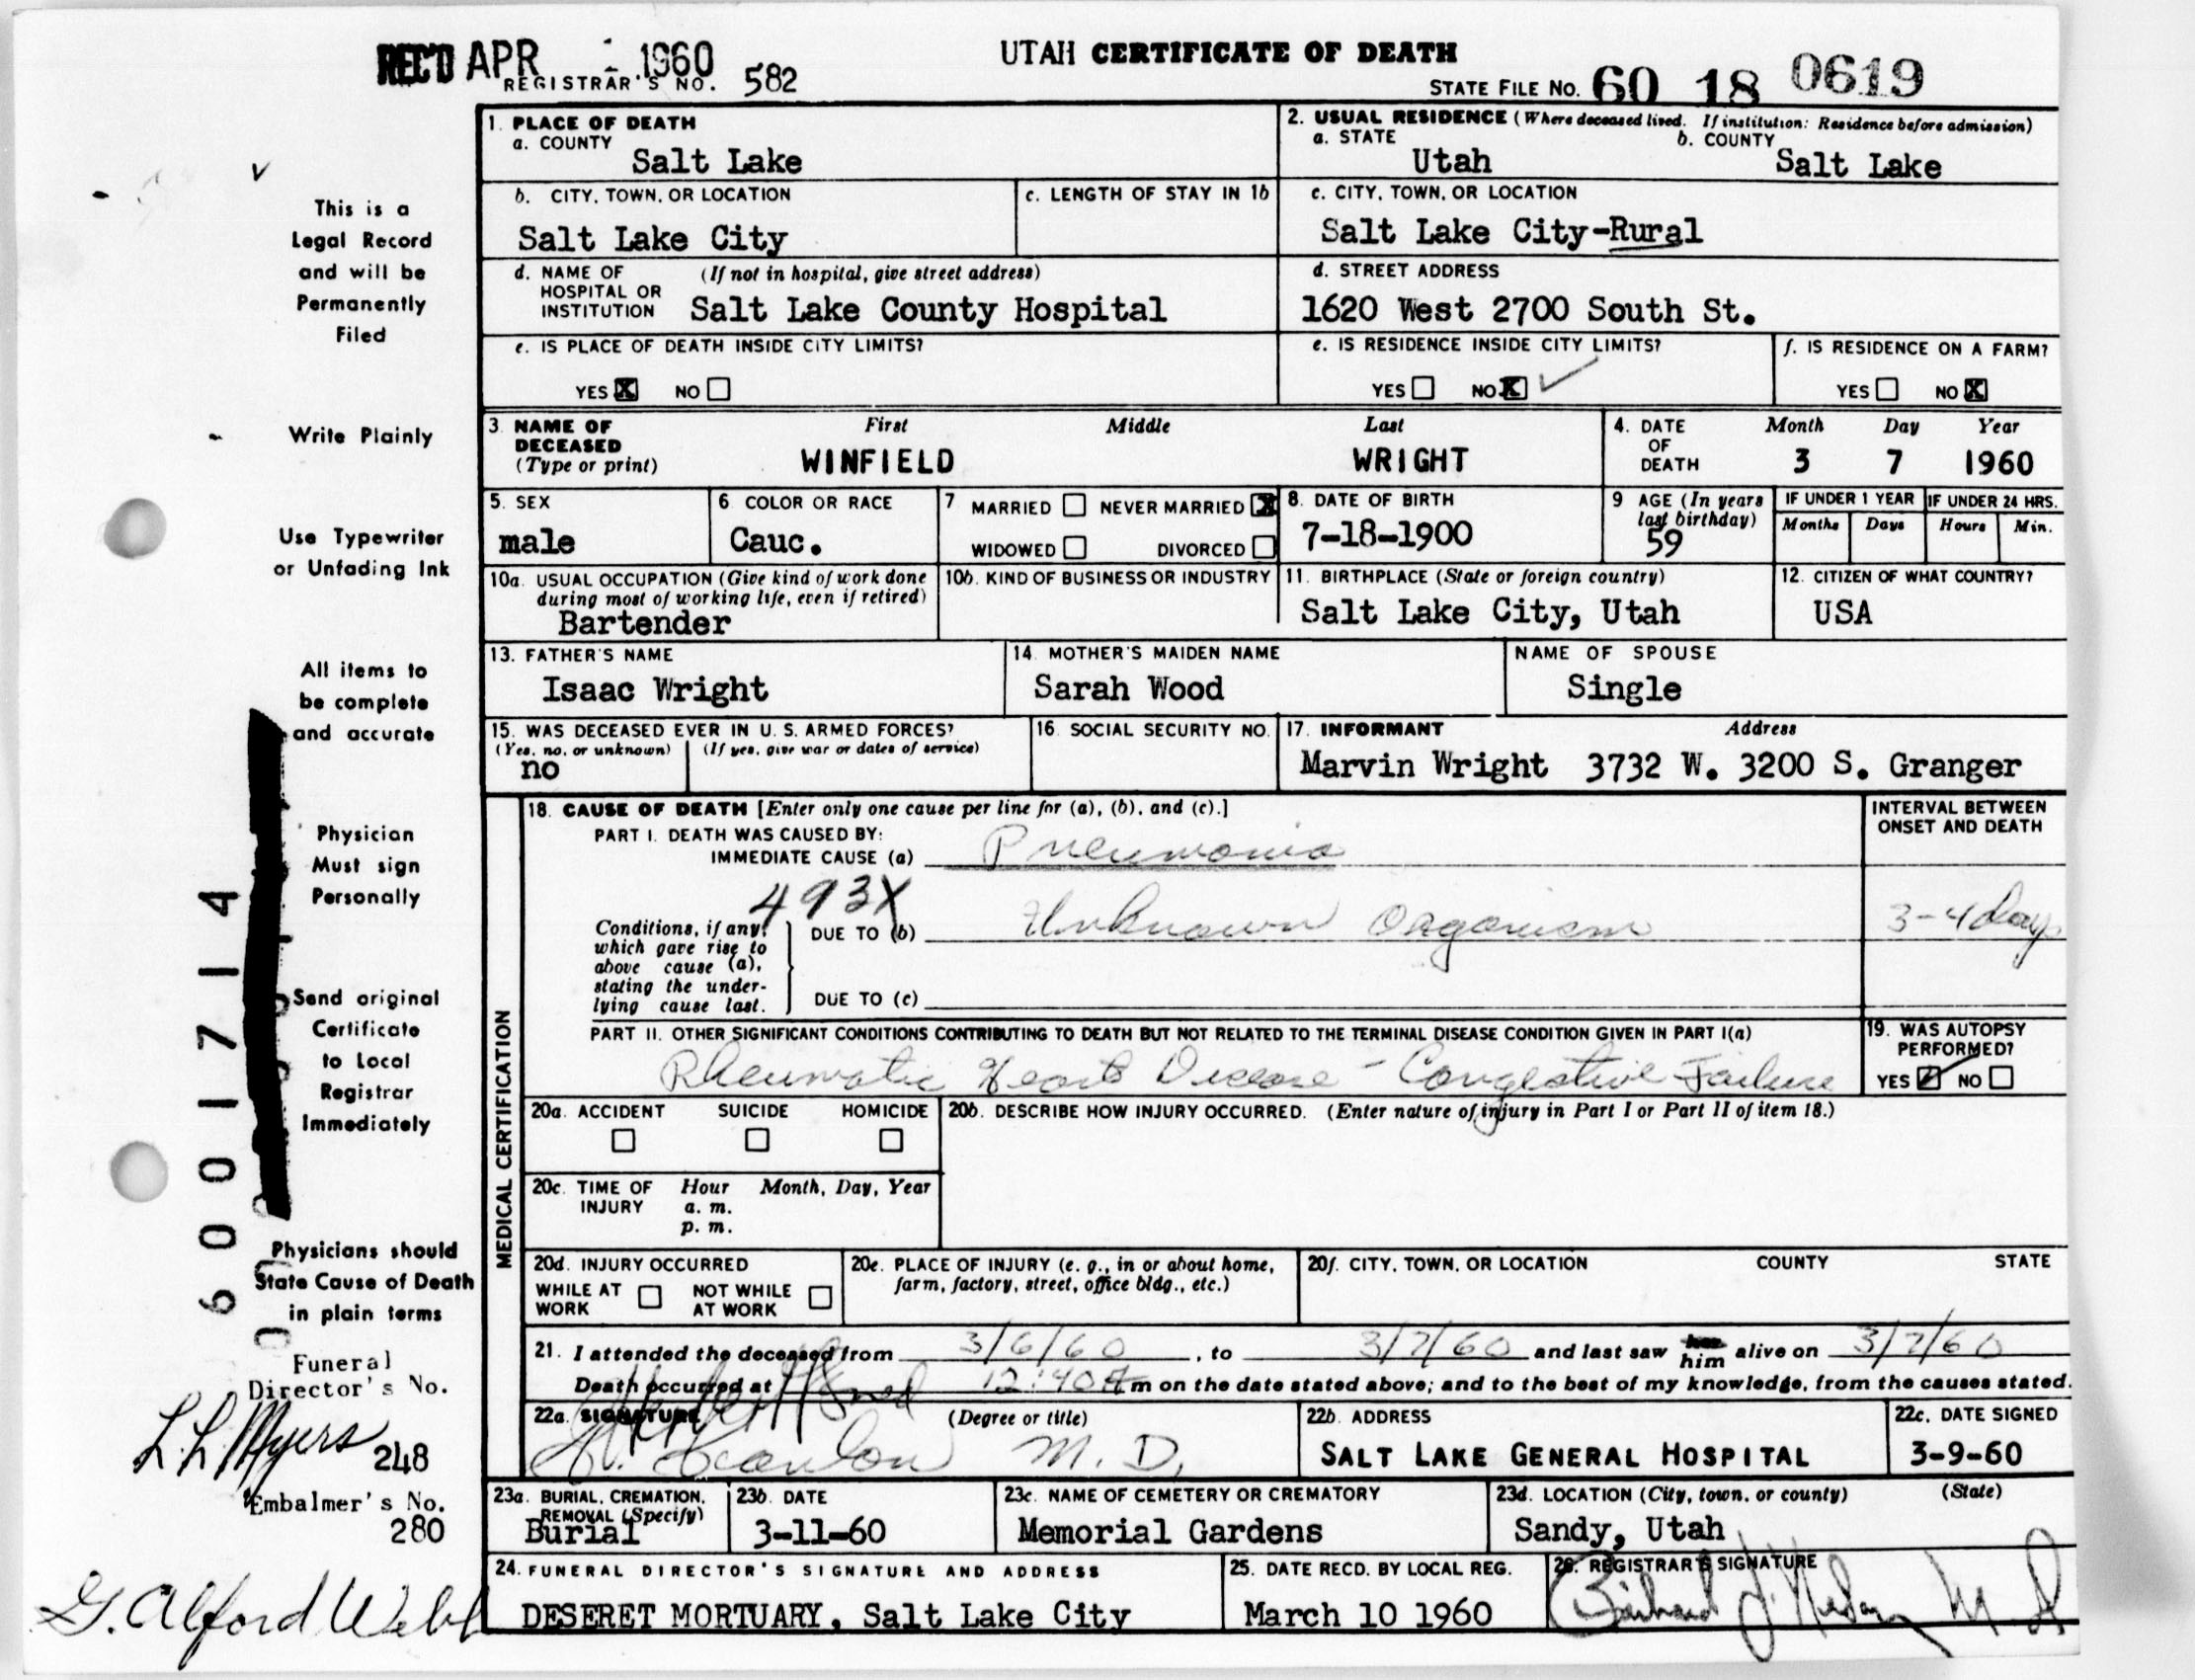 REC'D APR 1960
UTAH CERTIFICATE OF DEATH
REGISTRAR'S NO. 582
STATE FILE NO. 60 18 0619
1. PLACE OF DEATH
a. COUNTY
Salt Lake
2. USUAL RESIDENCE (Where deceased lived. If institution: Residence before admission)
a. STATE b. COUNTY
Utah Salt Lake
b. CITY, TOWN, OR LOCATION
Salt Lake City
c. LENGTH OF STAY IN 1b
c. CITY, TOWN, OR LOCATION
Salt Lake City-Rural
d. NAME OF (If not in hospital, give street address)
HOSPITAL OR
INSTITUTION Salt Lake County Hospital
d. STREET ADDRESS
1620 West 2700 South St.
e. IS PLACE OF DEATH INSIDE CITY LIMITS?
YES X NO
e. IS RESIDENCE INSIDE CITY LIMITS?
YES NO X
f. IS RESIDENCE ON A FARM?
YES NO X
3. NAME OF First Middle Last
DECEASED
(Type or print) WINFIELD WRIGHT
4. DATE Month Day Year
OF
DEATH 3 7 1960
5. SEX
male
6 COLOR OR RACE
Cauc.
7 MARRIED NEVER MARRIED X
WIDOWED DIVORCED
8. DATE OF BIRTH
7-18-1900
9 AGE (In years
last birthday)
59
IF UNDER 1 YEAR
Months Days
IF UNDER 24 HRS.
Hours Min.
10a. USUAL OCCUPATION (Give kind of work done
during most of working life, even if retired)
Bartender
10b. KIND OF BUSINESS OR INDUSTRY
11. BIRTHPLACE (State or foreign country)
Salt Lake City, Utah
12. CITIZEN OF WHAT COUNTRY?
USA
13. FATHER'S NAME
Isaac Wright
14. MOTHER'S MAIDEN NAME
Sarah Wood
NAME OF SPOUSE
Single
15. WAS DECEASED EVER IN U. S. ARMED FORCES?
(Yes, no, or unknown) (If yes, give war or dates of service)
no
16. SOCIAL SECURITY NO.
17. INFORMANT Address
Marvin Wright 3732 W. 3200 S. Granger
MEDICAL CERTIFICATION
18. CAUSE OF DEATH [Enter only one cause per line for (a), (b), and (c).]
PART I. DEATH WAS CAUSED BY:
IMMEDIATE CAUSE (a) Pneumonia
INTERVAL BETWEEN
ONSET AND DEATH
493X
Conditions, if any,
which gave rise to
above cause (a),
stating the under-
lying cause last.
DUE TO (b) Unknown Organism
3-4 days
DUE TO (c)
PART II. OTHER SIGNIFICANT CONDITIONS CONTRIBUTING TO DEATH BUT NOT RELATED TO THE TERMINAL DISEASE CONDITION GIVEN IN PART I(a)
Rheumatic Heart Disease - Congestive Failure
19. WAS AUTOPSY
PERFORMED?
YES NO
20a. ACCIDENT SUICIDE HOMICIDE
20b. DESCRIBE HOW INJURY OCCURRED. (Enter nature of injury in Part I or Part II of item 18.)
20c. TIME OF Hour Month, Day, Year
INJURY a. m.
p. m.
20d. INJURY OCCURRED
WHILE AT NOT WHILE
WORK AT WORK
20e. PLACE OF INJURY (e. g., in or about home,
farm, factory, street, office bldg., etc.)
20f. CITY, TOWN, OR LOCATION COUNTY STATE
21. I attended the deceased from 3/6/60, to 3/7/60 and last saw him alive on 3/7/60
Death occurred at 12:40 A m on the date stated above; and to the best of my knowledge, from the causes stated.
22a. SIGNATURE (Degree or title)
M. D.
22b. ADDRESS
SALT LAKE GENERAL HOSPITAL
22c. DATE SIGNED
3-9-60
23a. BURIAL, CREMATION,
REMOVAL (Specify)
Burial
23b. DATE
3-11-60
23c. NAME OF CEMETERY OR CREMATORY
Memorial Gardens
23d. LOCATION (City, town, or county) (State)
Sandy, Utah
24. FUNERAL DIRECTOR'S SIGNATURE AND ADDRESS
DESERET MORTUARY, Salt Lake City
25. DATE RECD. BY LOCAL REG.
March 10 1960
26. REGISTRAR'S SIGNATURE
This is a
Legal Record
and will be
Permanently
Filed
Write Plainly
Use Typewriter
or Unfading Ink
All items to
be complete
and accurate
Physician
Must sign
Personally
Send original
Certificate
to Local
Registrar
Immediately
Physicians should
State Cause of Death
in plain terms
Funeral
Director's No.
L. L. Myers 248
Embalmer's No.
280
G. Alford Webb
6001714